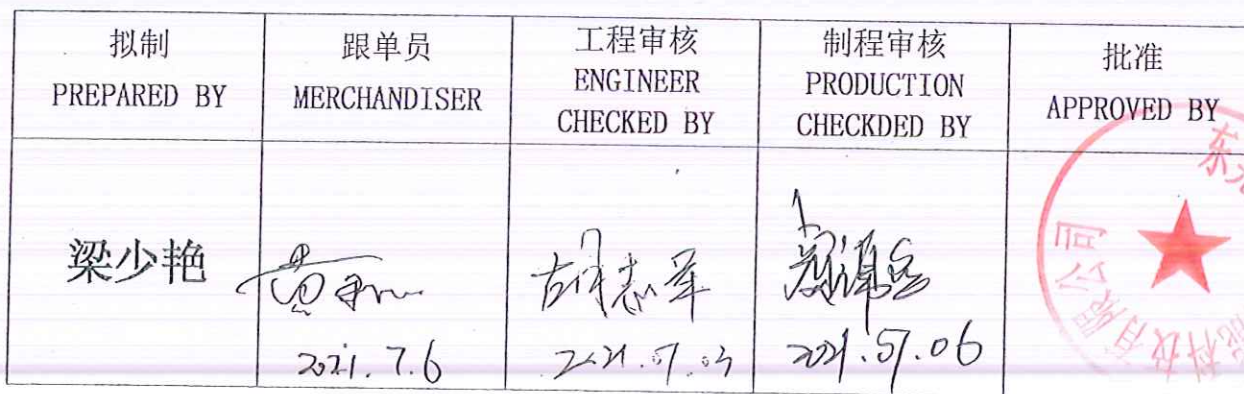 拟制
PREPARED BY
跟单员
MERCHANDISER
工程审核
ENGINEER
CHECKED BY
制程审核
PRODUCTION
CHECKDED BY
批准
APPROVED BY
梁少艳
2021.7.6
胡志军
2021.07.03
2021.07.06
科技有限公司